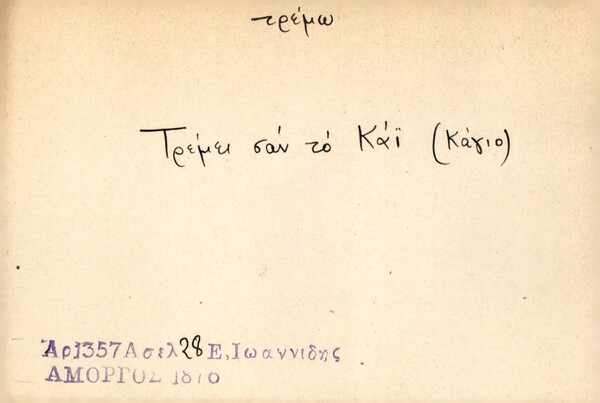 τρέμω
Τρέμει σάν τό Κάϊ (Κάγιο)
Αρ1357Ασελ28 Ε,Ιωαννιδης
ΑΜΟΡΓΟΣ 1876